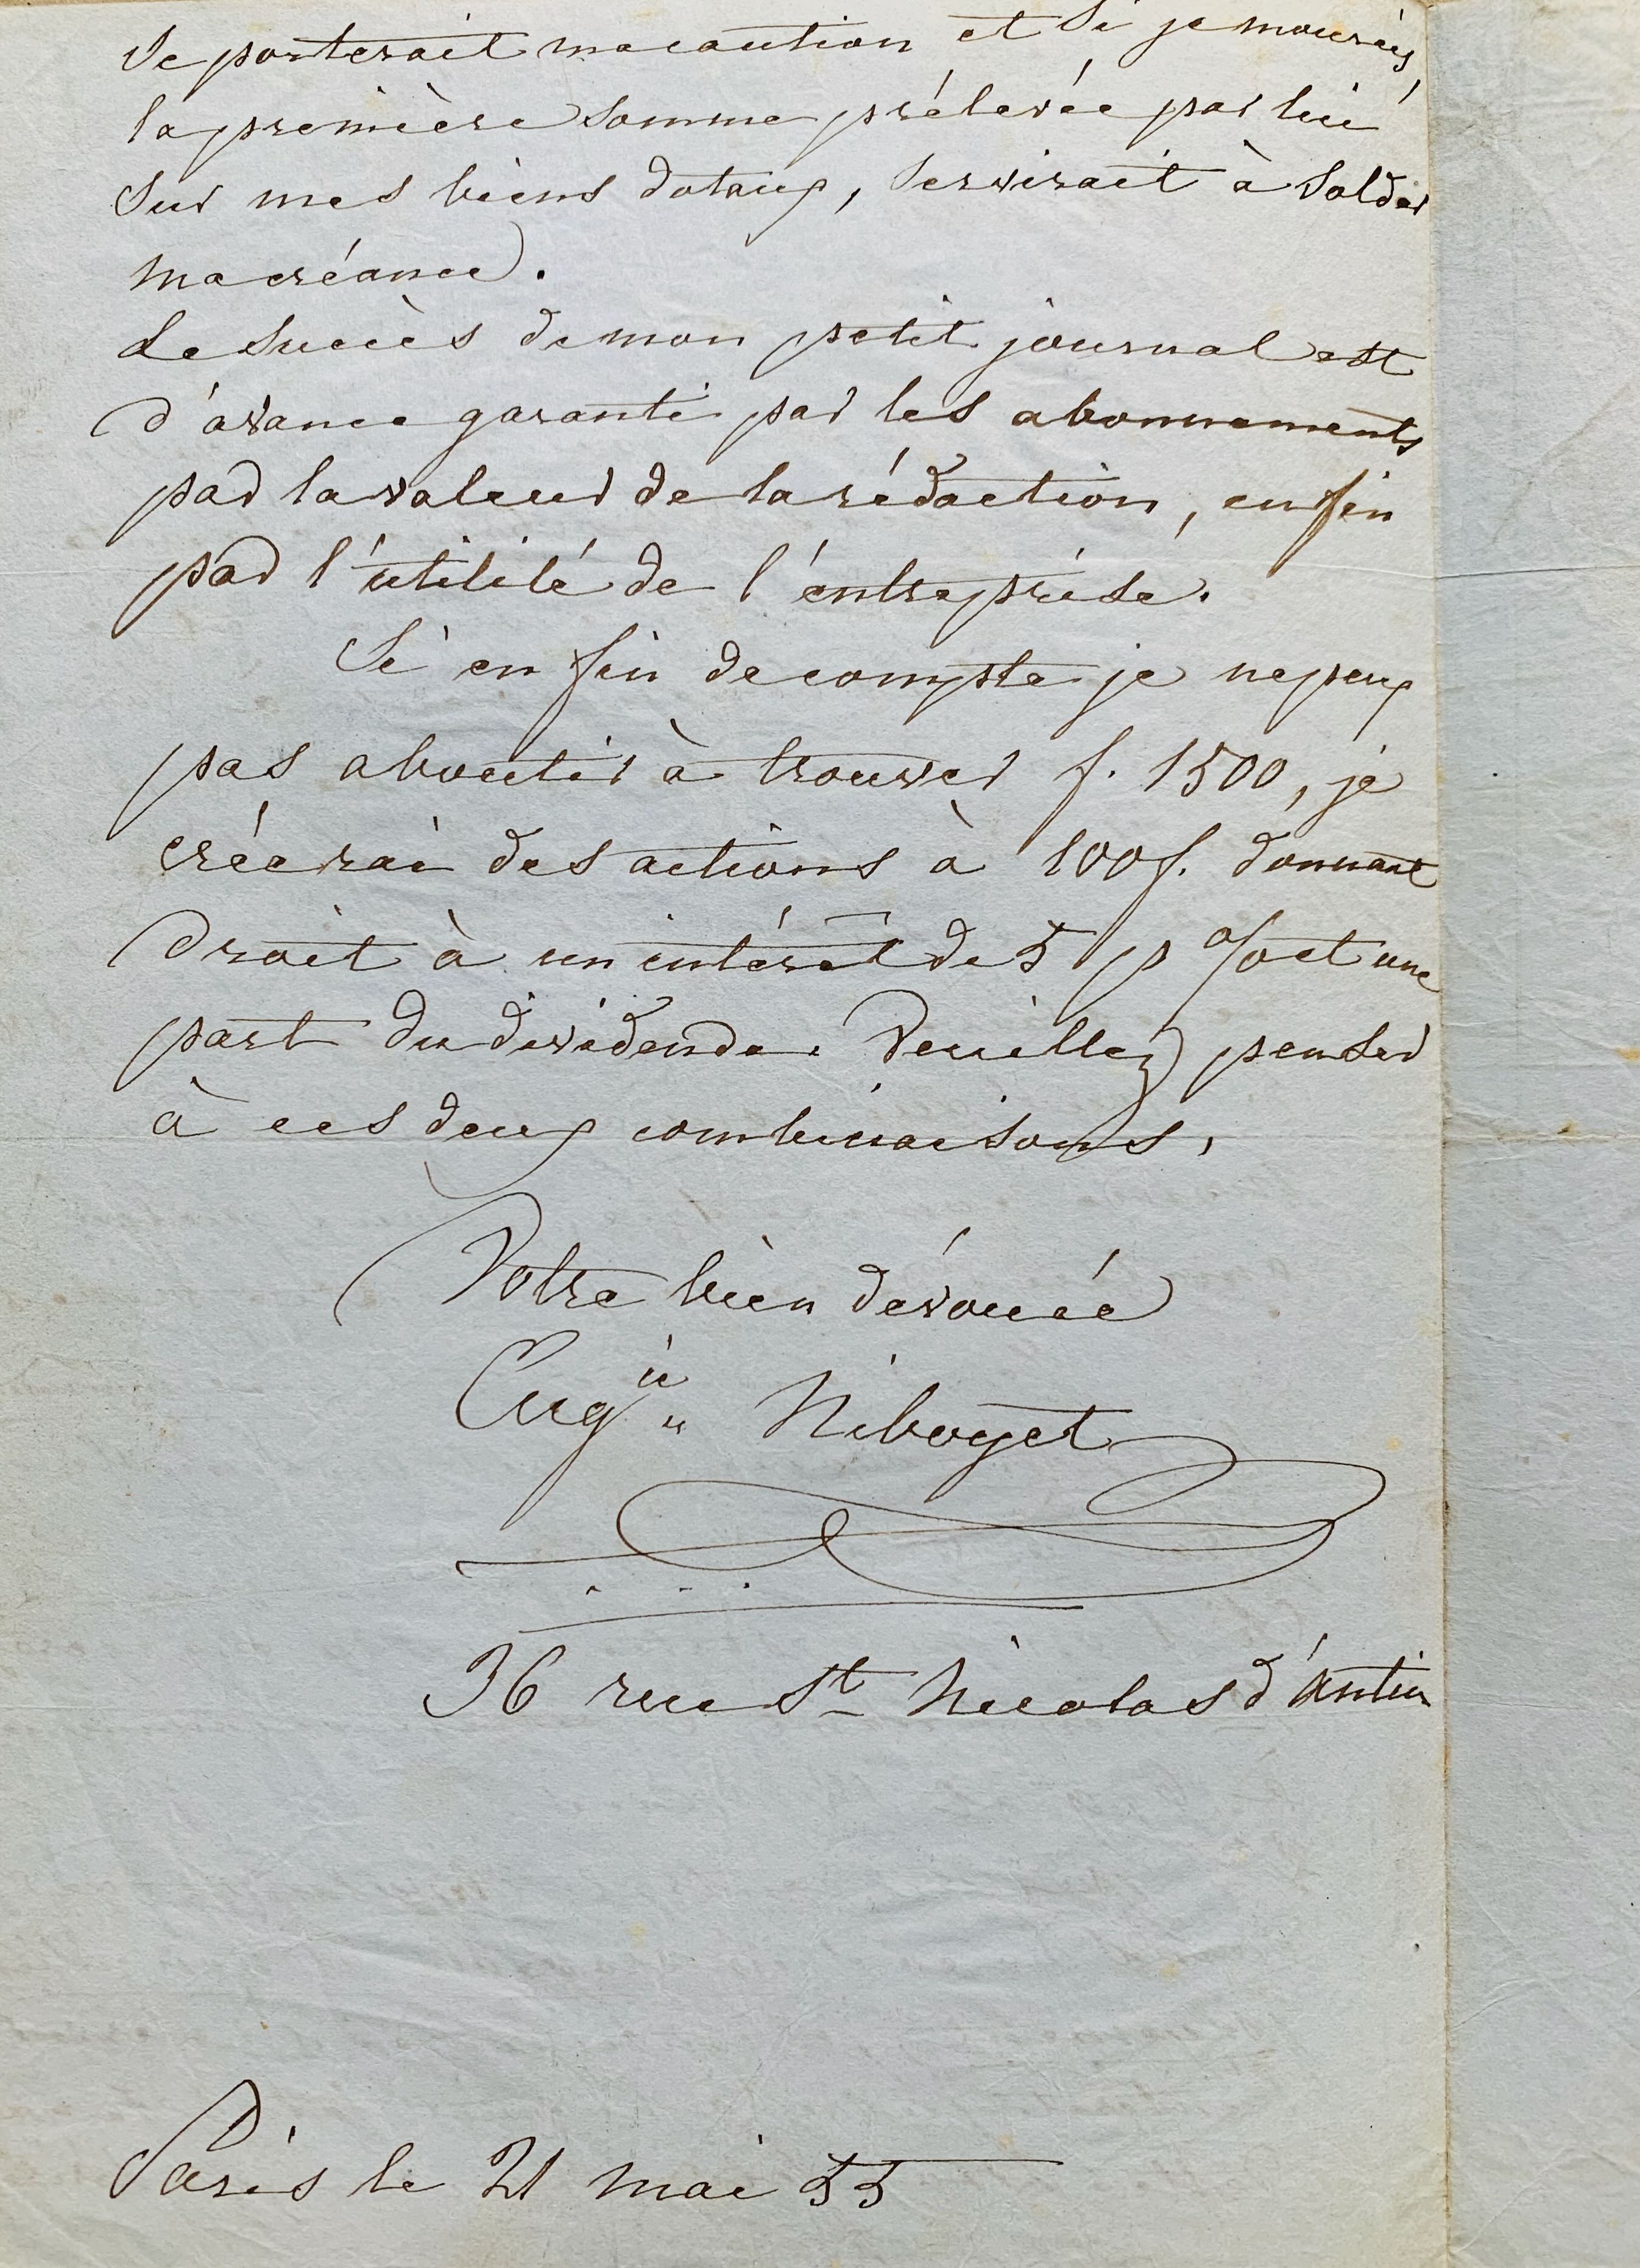 se porterait ma caution et si je mourais,
la première somme prélevée par lui
sur mes biens dotaux, servirait à solder
ma créance.
Le succès de mon petit journal est
d'avance garanti par les abonnements
par la valeur de la rédaction, enfin
par l'utilité de l'entreprise.
Si en fin de compte je ne peux
pas aboutir à trouver f. 1500, je
créerai des actions à 100 f. donnant
droit à un intérêt de 5 p % et une
part du dividende. Veuillez penser
à ces deux combinaisons.
Votre bien dévouée
Eugie Niboyet
36 rue St Nicolas d'Antin
Paris le 21 mai 55